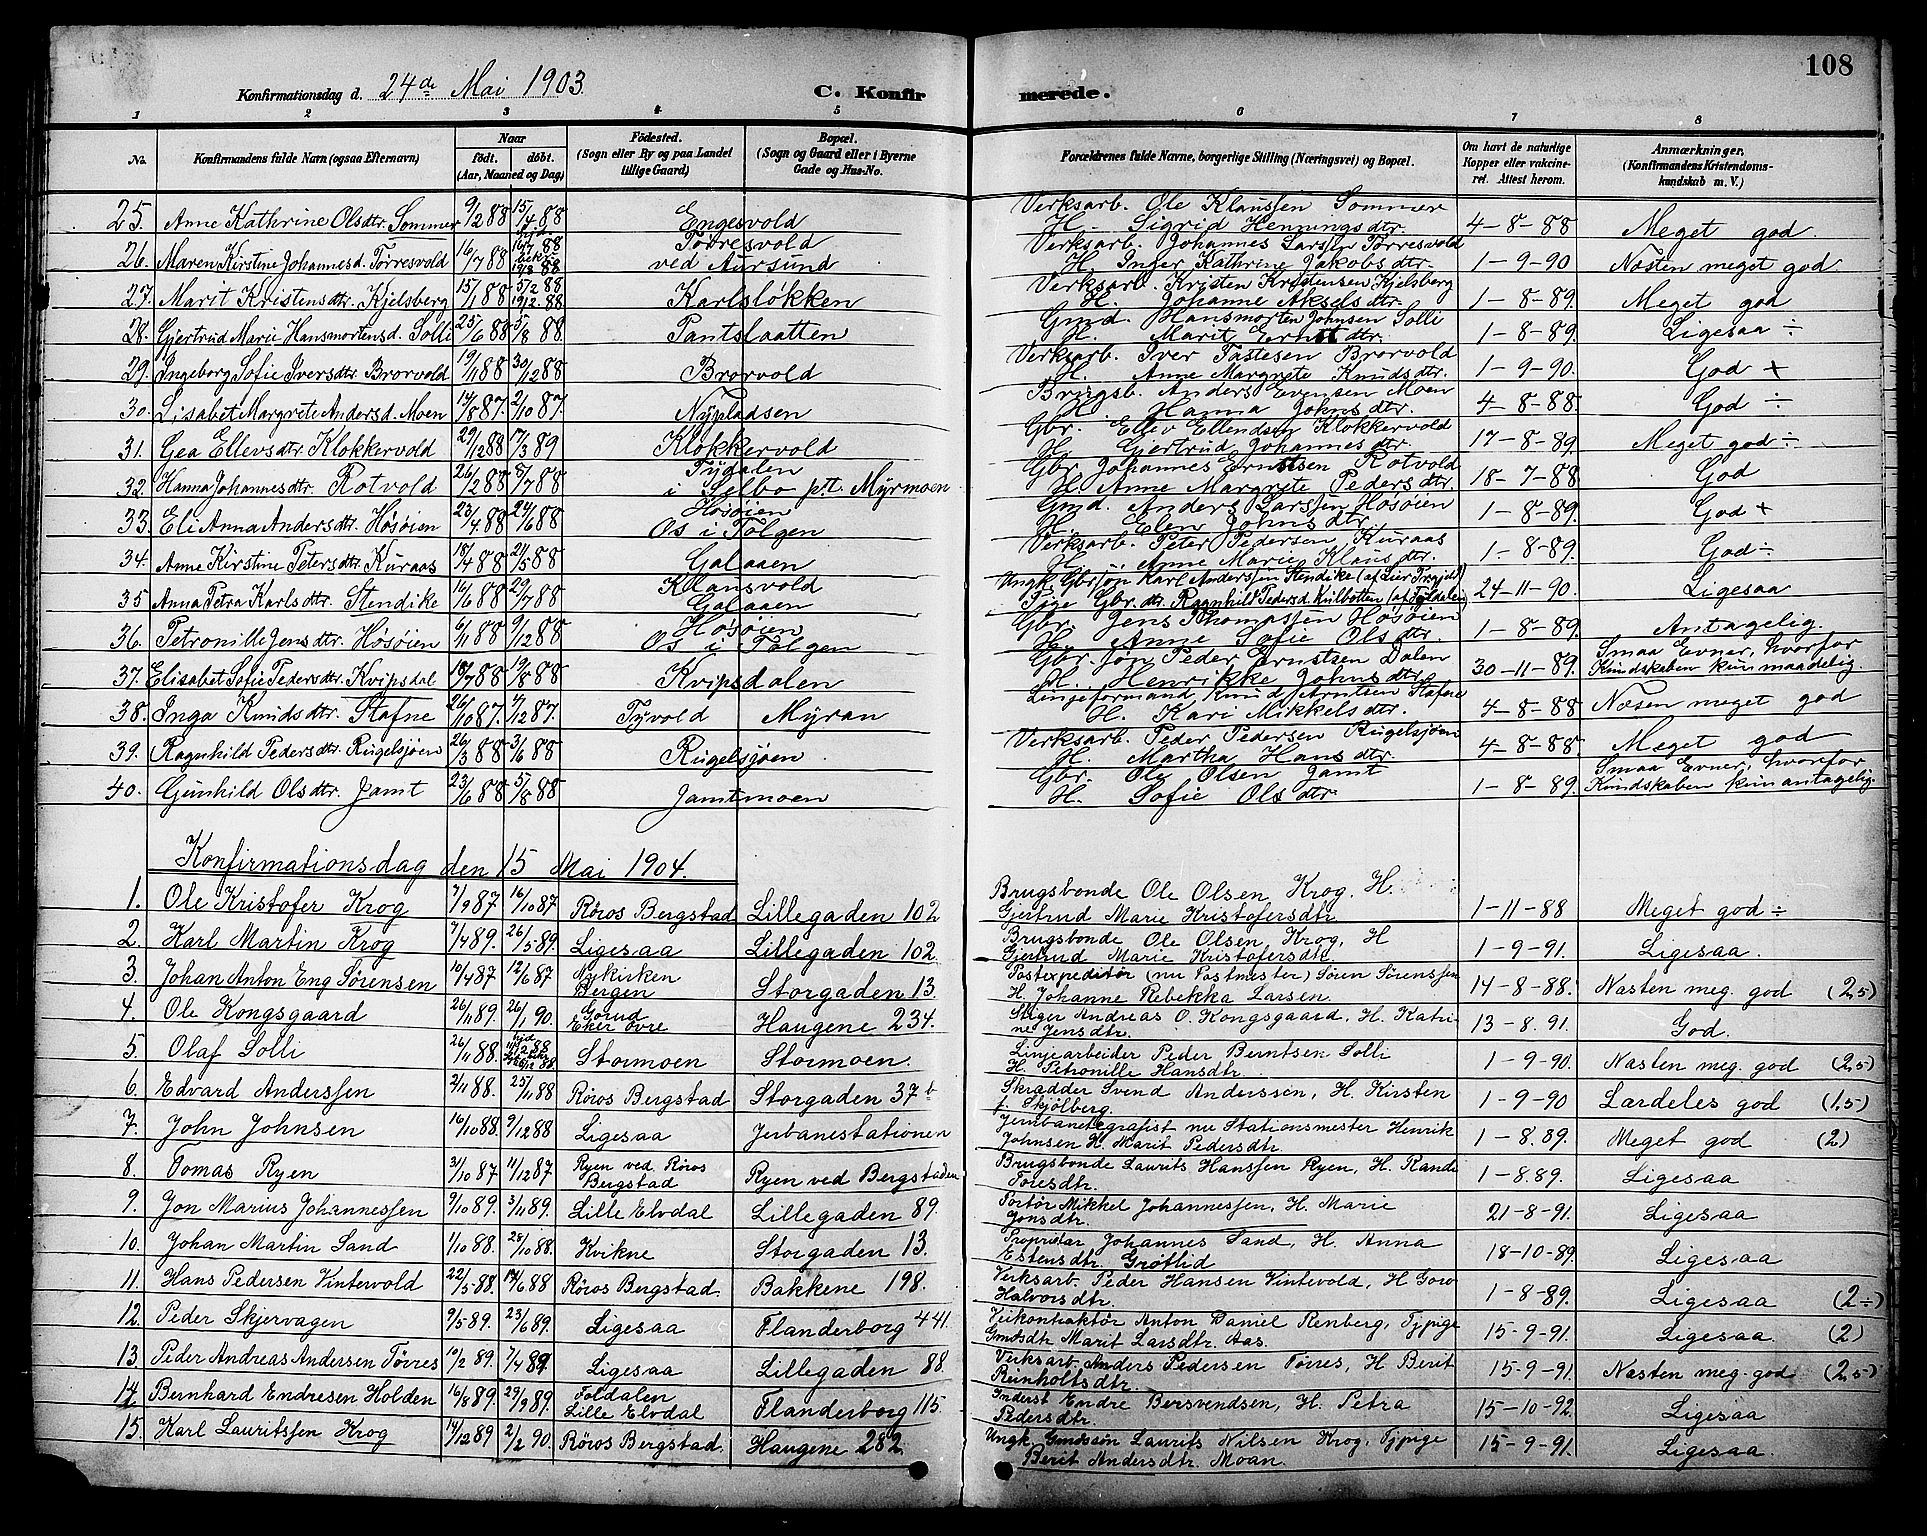 108
Konfirmationsdag d. 24de Mai 1903. C. Konfirmerede.
1 2 3 4 5 6 7 8
No. Konfirmandens fulde Navn (ogsaa Efternavn) Naar födt. döbt. (Aar, Maaned og Dag) Födested. (Sogn eller By og paa Landet tillige Gaard) Bopæl. (Sogn og Gaard eller i Byerne Gade og Hus-No. Forældrenes fulde Navne, borgerlige Stilling (Næringsvei) og Bopæl. Om havt de naturlige Kopper eller vakcineret. Attest herom. Anmærkninger, (Konfirmandens Kristendomskundskab m. V.)
25. Anne Kathrine Olsdtr. Sommer 9/2 88 15/4 88 Engesvold Verksarb. Ole Klaussen Sommer H. Sigrid Henningsdtr. 4-8-88 Meget god
26. Maren Kirstine Johannesd. Törresvold 16/7 88 hjd. 16/7 88 bekr. 19/8 88 Törresvold ved Aursund Verksarb. Johannes Larsen Törresvold H. Inger Kathrine Jakobsdtr. 1-9-90 Næsten meget god
27. Marit Kristensdtr. Kjelsberg 15/1 88 5/2 88 19/2 88 Karlslökken Verksarb. Kristen Kristensen Kjelsberg H. Johanne Akselsdtr. 1-8-89. Meget god
28. Gjertrud Marie Hansmortensd. Solli 25/6 88 5/8 88. Pantslaatten Gmd. Hansmorten Johnsen Solli H. Marit Ernstdtr. 1-8-89. Ligesaa ÷
29. Ingeborg Sofie Iversdtr. Brorvold 19/11 88 30/12 88 Brorvold Verksarb. Iver Tastesen Brorvold H. Anne Margrete Knudsdtr. 1-9-90. God +
30. Lisabet Margrete Andersd. Moen 14/8 87. 2/10 87. Nypladsen Brugsb. Anders Evensen Moen H. Hanna Johnsdtr. 4-8-88. God ÷
31. Gea Ellevsdtr. Klokkervold 29/12 88 17/3 89 Klokkervold Gbr. Ellev Ellendsen Klokkervold H. Gjertrud Johannesdtr. 17-8-89. Meget god ÷
32. Hanna Johannesdtr. Rotvold 26/2 88 8/7 88 Tydalen i Selbo p.t. Myrmoen Gbr. Johannes Ernstsen Rotvold H. Anne Margrete Pedersdtr. 18-7-88 God
33. Eli Anna Andersdtr. Hösöien 23/4 88 24/6 88 Hösöien Os i Tolgen Gmd. Anders Larssen Hösöien H. Elen Johnsdtr. 1-8-89. God +
34. Anne Kirstine Petersdtr. Kuraas 18/4 88 21/5 88 Galaaen Verksarb. Peter Pedersen Kuraas H. Anne Marie Klausdtr. 1-8-89. God ÷
35 Anna Petra Karlsdtr. Stendike 16/6 88 29/7 88 Klausvold Galaaen Ungk. Gbrsøn Karl Anderssen Stendike Pige Gbr.dtr. Ragnhild Pedersd. 24-11-90. Ligesaa
36. Petronille Jensdtr. Hösöien 6/11 88 9/12 88 Hösöien Os i Tolgen Gbr. Jens Thomassen Hösöien H. Anne Sofie Olsdtr. 1-8-89 Antagelig.
37. Elisabet Sofie Pedersdtr. Kvipsdal 18/7 88 19/8 88 Kvipsdalen Gbr. Jøn Peder Ernstsen Dalen H. Henrikke Johnsdtr. 30-11-89. Smaa Evner, hvorfor Kundskaben kun maadelig.
38. Inga Knudsdtr. Stafne 26/10 87. 4/12 87. Tyvold Myran Linjeformand Knud Arntsen Stafne H. Kari Mikkelsdtr. 4-8-88 Næsen meget god
39. Ragnhild Pedersdtr. Rugelsjøen 26/3 88 3/6 88 Rugelsjøen Verksarb. Peder Pedersen Rugelsjøen H. Martha Hansdtr. 4-8-88. Meget god
40. Gunhild Olsdtr. Jamt 23/6 88 5/8 88 Jamtmoen Gbr. Ole Olsen Jamt H. Sofie Olsdtr. 1-8-89. Smaa Evner, hvorfor Kundskaben kun antagelig.
Konfirmationsdag den 15 Mai 1904.
1. Ole Kristofer Krog 7/9 87 16/10 87 Röros Bergstad Lillegaden 102 Brugsbonde Ole Olsen Krog. H. Gjertrud Marie Kristofersdtr. 1-11-88 Meget god ÷
2. Karl Martin Krog 7/4 89. 26/5 89. Ligesaa Lillegaden 102 Brugsbonde Ole Olsen Krog, H Gjertrud Marie Kristofersdtr. 1-9-91. Ligesaa.
3. Johan Anton Eng Sørensen 10/4 87 12/6 87 Nykirken Bergen Storgaden 13. Postexpeditør (nu Postmester) Sören Sörenssen H. Johanne Rebekka Larsen. 14-8-88. Næsten meg. god (2,5)
4. Ole Kongsgaard 26/11 89. 26/1 90. Eker övre Haugene 234. Stiger Andreas O. Kongsgaard, H. Katrine Jensdtr. 13-8.91. God.
5. Olaf Solli 26/11 88. Stormoen Stormoen. Linjearbeider Peder Berntsen Solli H. Petronille Hansdtr. 1-9-90. Næsten meg. god (2,5)
6. Edvard Anderssen 2/11 88. 25/11 88 Röros Bergstad Storgaden 37 b Skrædder Svend Anderssen, H. Kirsten f. Skjölberg. 1-9-90 Særdeles god (1,5)
7. John Johnsen 16/10 88. 9/12 88 Ligesaa Jerbanestationen Jernbanetegrafist nu Stationsmester Henrik Johnsen H. Marit Pedersdtr. 1-8.89. Meget god (2)
8. Tomas Ryen 31/10 87 11/12 87 Ryen ved Röros Bergstad Ryen ved Bergstaden Brugsbonde Laurits Hanssen Ryen, H. Randi Toresdtr. 1-8.89. Ligesaa
9. Jon Marius Johannessen 9/10 89. 3/11 89. Lille Elvdal Lillegaden 89. Portör Mikkel Johannessen, H. Marie Jonsdtr. 21-8-91. Ligesaa
10. Johan Martin Sand 1/10 88. 28/10 88. Kvikne Storgaden 13. Proprietær Johannes Sand, H. Anna Estensdtr. Grötlid 18-10-89. Ligesaa
11. Hans Pedersen Vintervold 22/5 88. 17/6 88 Röros Bergstad. Bakkene 198. Verksarb. Peder Hansen Vintevold, H Goro Halvorsdtr. 1-8-89. Ligesaa (2÷)
12. Peder Skjervagen 9/5 89. 23/6 89. Ligesaa Flanderborg 441. Veikontraktør Anton Daniel Renberg, Tjpige Gmdsdtr Marit Larsdtr. Aas. 15-9-91. Ligesaa. (2)
13. Peder Andreas Andersen Törres 10/2 89. 7/4 89. Ligesaa Lillegaden 88 Verksarb. Anders Pedersen Törres, H Berit Reinholtsdtr. 15-9-91. Næsten meg. god (2,5)
14 Bernhard Endresen Holden 16/8 89. 29/9 89. Foldalen Lille Elvdal Flanderborg 115 Inderst Endre Bersvendsen, H. Petra Pedersdtr. 15-10-92. Ligesaa
15. Karl Lauritssen Krog 14/12 89 2/2 90. Röros Bergstad. Haugene 282 Ungk. Gmdssön Laurits Nilsen Krog, Tjpige Berit Andersdtr. Moan. 15-9-91. Ligesaa